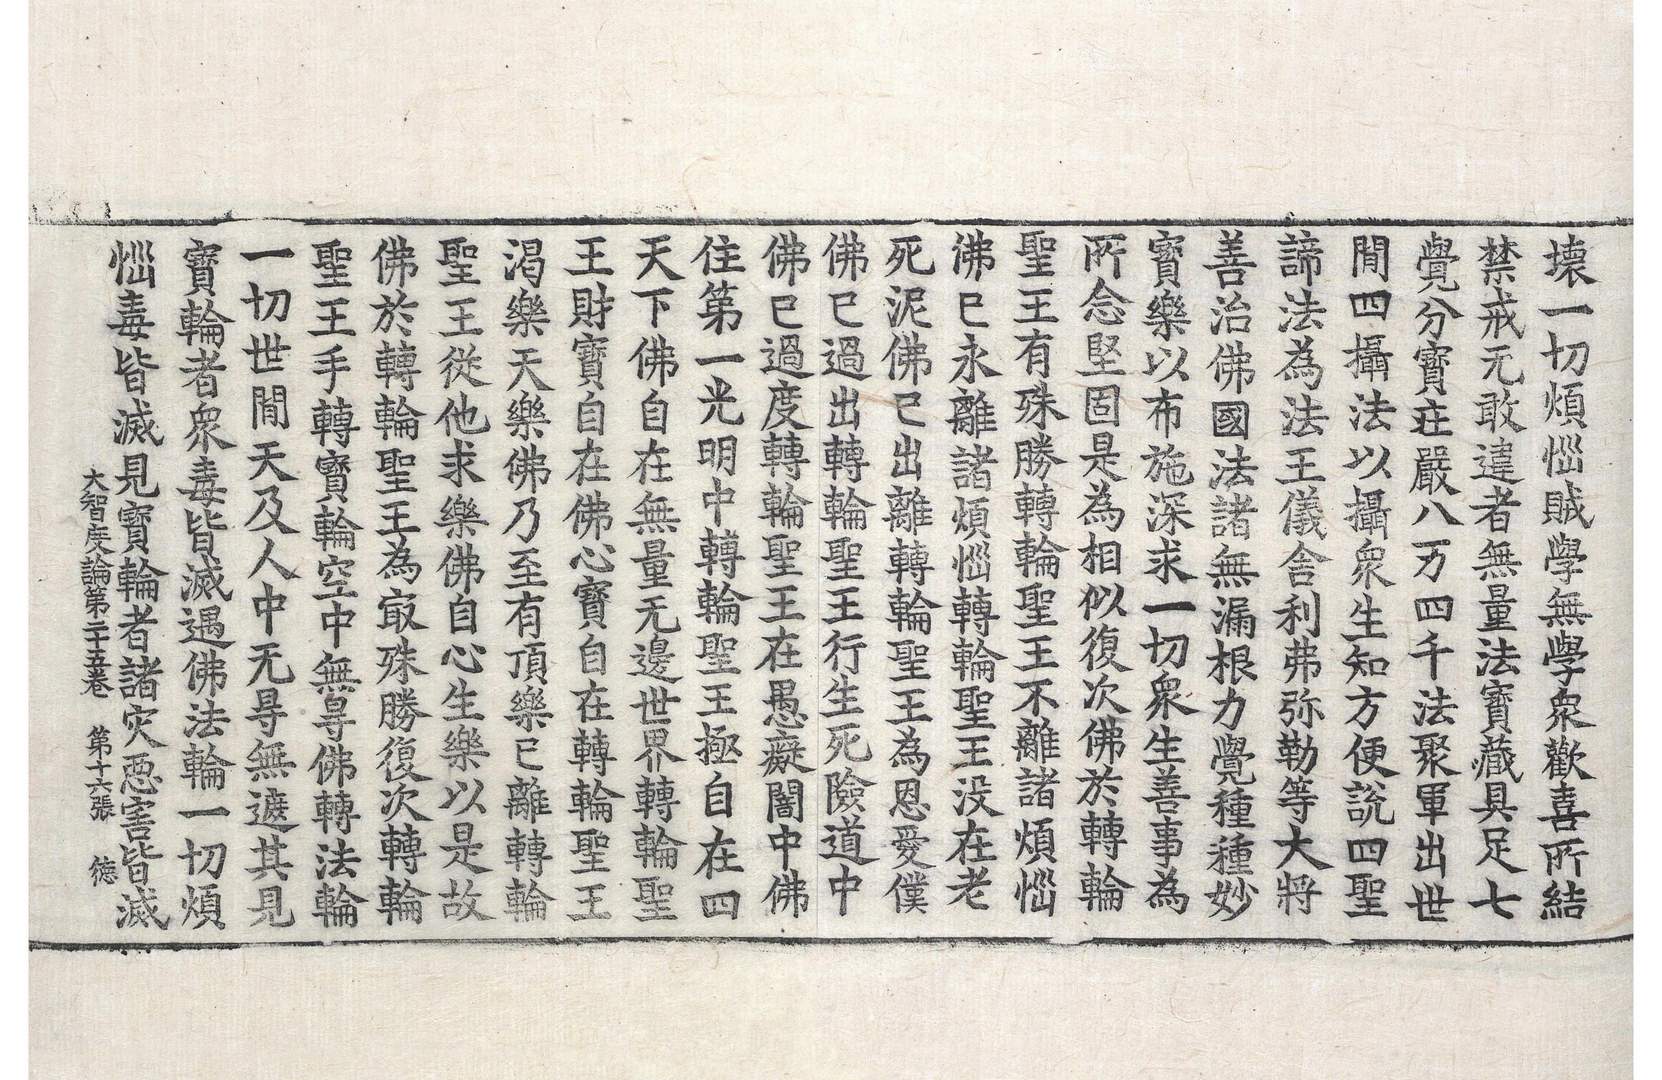 壞一切煩惱賊學無學衆歡喜所結
禁戒无敢違者無量法寶藏具足七
覺分寶莊嚴八万四千法聚軍出世
閒四攝法以攝衆生知方便說四聖
諦法為法王儀舍利弗弥勒等大將
善治佛國法諸無漏根力覺種種妙
寶樂以布施深求一切衆生善事為
所念堅固是為相似復次佛於轉輪
聖王有殊勝轉輪聖王不離諸煩惱
佛已永離諸煩惱轉輪聖王没在老
死泥佛已出離轉輪聖王為恩愛僕
佛已過出轉輪聖王行生死險道中
佛已過度轉輪聖王在愚癡闇中佛
住第一光明中轉輪聖王極自在四
天下佛自在無量无邊世界轉輪聖
王財寶自在佛心寶自在轉輪聖王
渴樂天樂佛乃至有頂樂已離轉輪
聖王從他求樂佛自心生樂以是故
佛於轉輪聖王為㝡殊勝復次轉輪
聖王手轉寶輪空中無㝵佛轉法輪
一切世閒天及人中无㝵無遮其見
寶輪者衆毒皆滅遇佛法輪一切煩
惱毒皆滅見寶輪者諸灾惡害皆滅
大智度論第二十五卷　第十六張　德